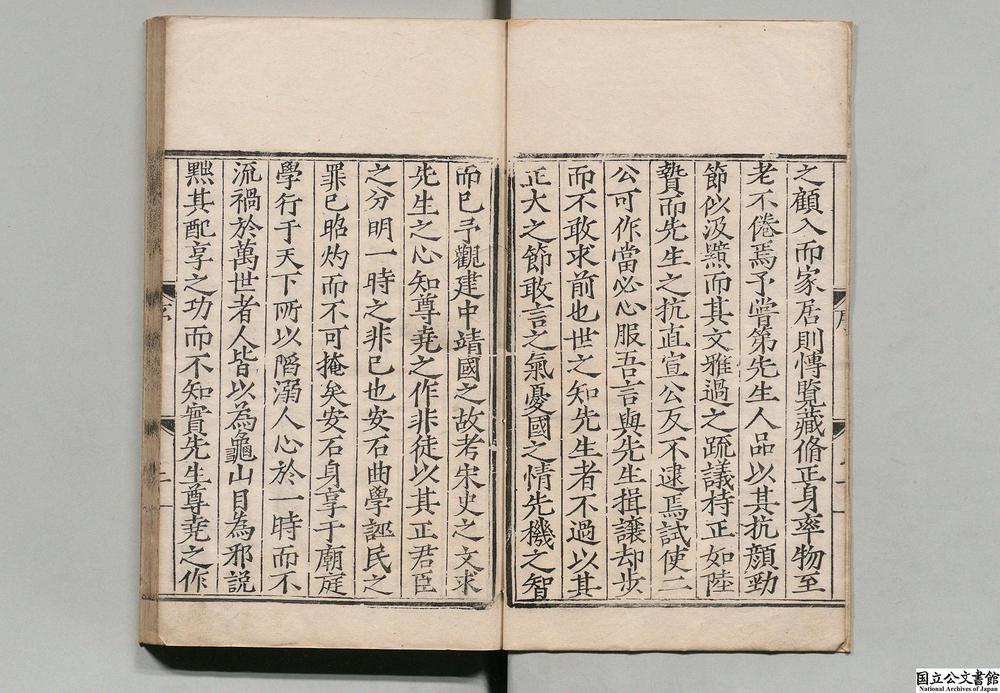 之顧入而家居則慱覧藏脩正身率物至
老不倦焉予嘗第先生人品以其抗顏勁
節似汲黯而其文雅過之疏議持正如陸
贄而先生之抗直宣公反不逮焉試使二
公可作當必心服吾言與先生揖譲却步
而不敢求前也世之知先生者不過以其
正大之節敢言之氣憂國之情先機之智
而已予觀建中靖國之故考宋史之文求
先生之心知尊堯之作非徒以其正君臣
之分明一時之非已也安石曲學誣民之
罪已昭灼而不可掩矣安石身享于廟庭
學行于天下所以陷溺人心於一時而不
流禍於萬世者人皆以為龜山目為邪說
黜其配享之功而不知實先生尊堯之作
序
二
国立公文書館
National Archives of Japan